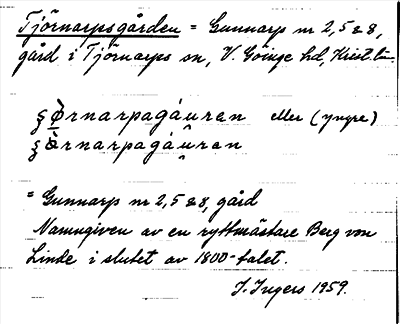 Tjörnarpsgården = Gunnarp nr 2, 5 & 8,
gård i Tjörnarps sn, V. Göinge hd, Krist. län.
§ø̀rnarpagáu̯ran eller (yngre)
§ø̀rnarpagáu̯ran
= Gunnarp nr 2, 5 & 8, gård
Namngiven av en ryttmästare Berg von
Linde i slutet av 1800-talet.
I. Ingers 1959.